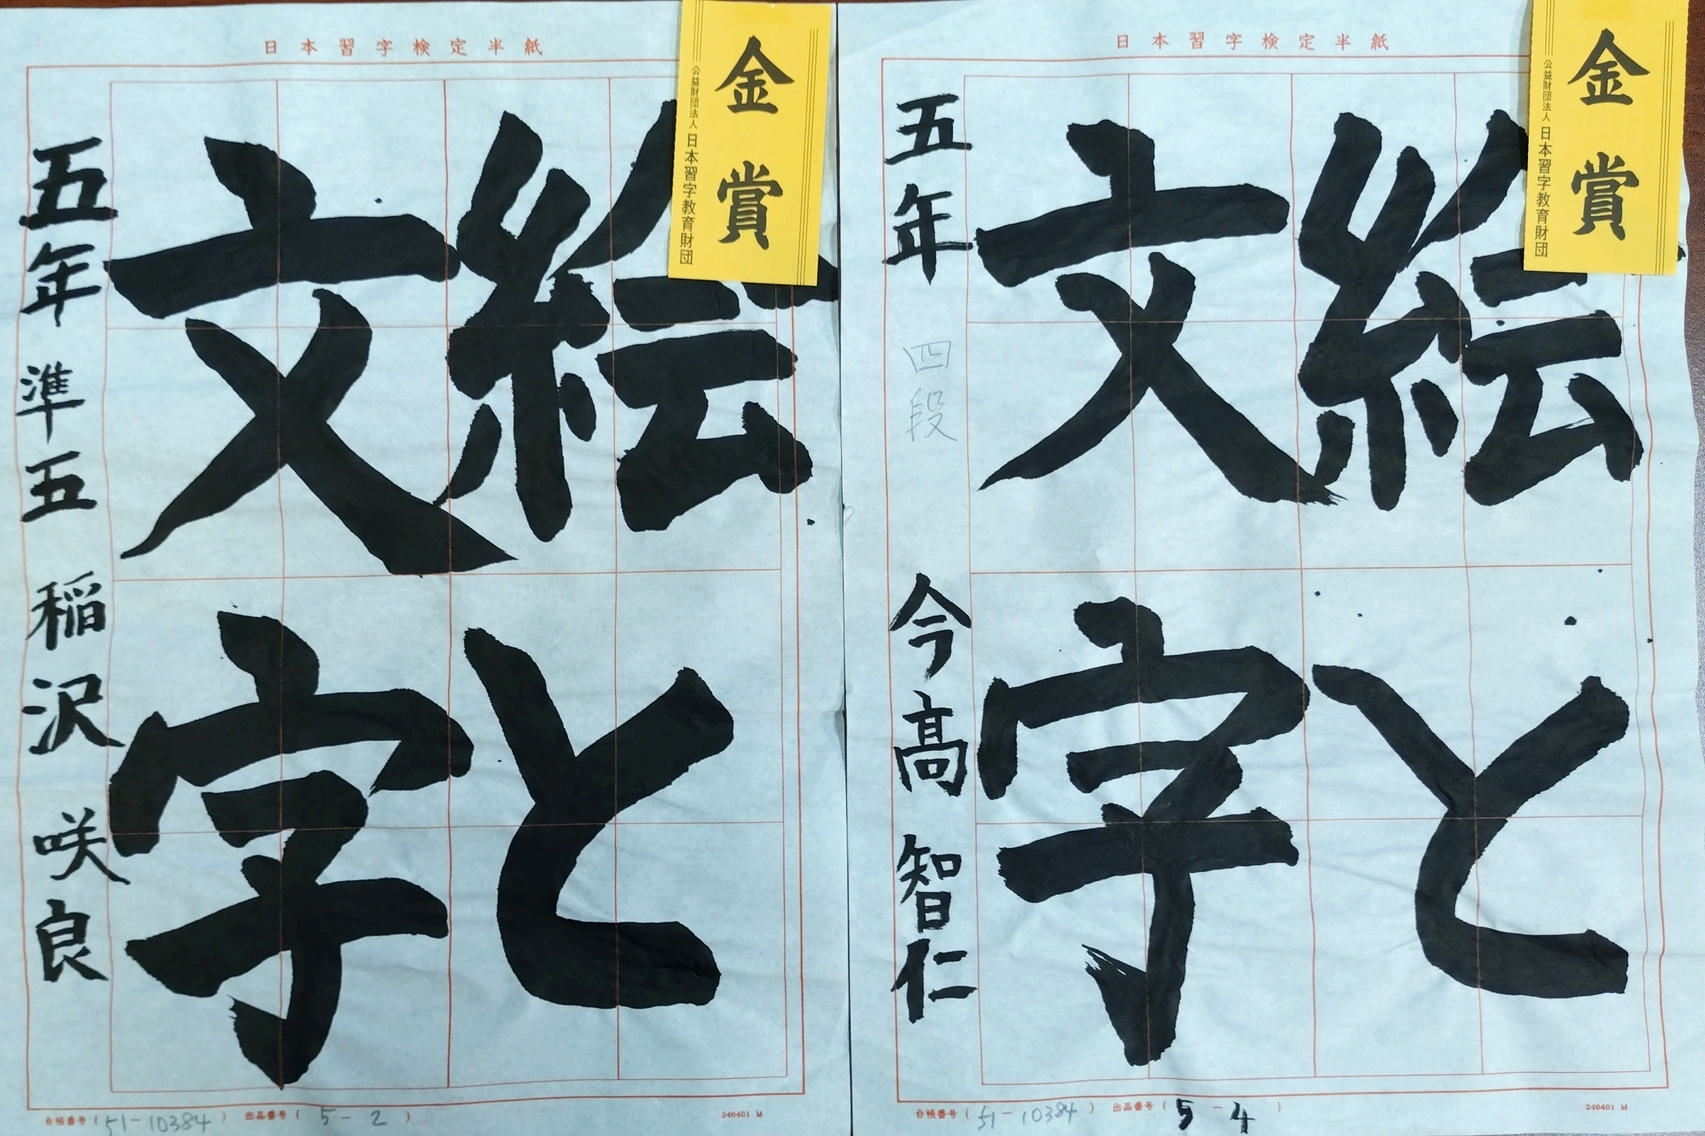 日本習字検定半紙
金賞
公益財団法人 日本習字教育財団
絵と
文字
五年 準五 稲沢 咲良
台帳番号 (51-10384) 出品番号 (5-2)
240401 M
日本習字検定半紙
金賞
公益財団法人 日本習字教育財団
絵と
文字
五年 四段 今高 智仁
台帳番号 (51-10384) 出品番号 (5-4)
240401 M